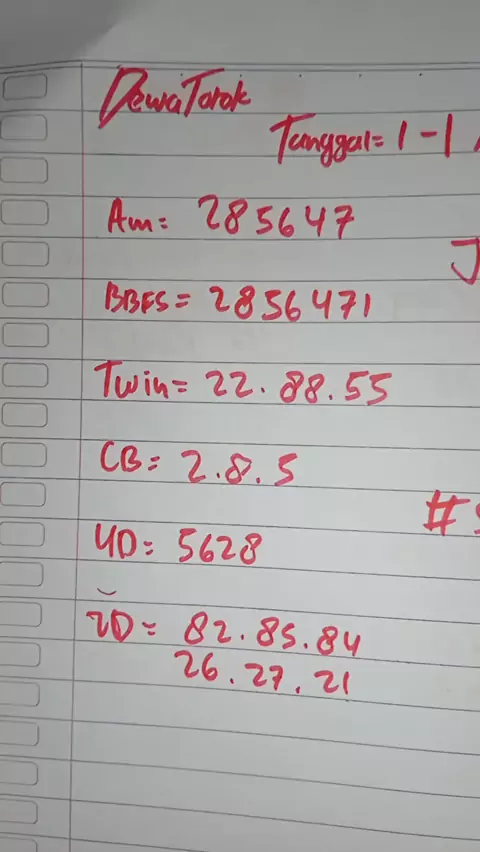 DewaTarok
Tanggal = 1 - 1
Am = 285647
J
BBFS = 2856471
Twin = 22. 88. 55
CB = 2.8.5
#
4D = 5628
2D = 82. 85. 84
26. 27. 21